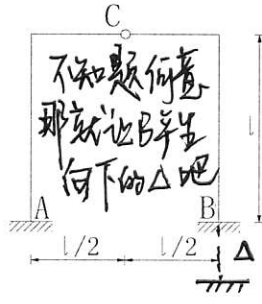 C
不知题何意
那就让B产生
向下的Δ吧
l
A
B
l/2
l/2
Δ